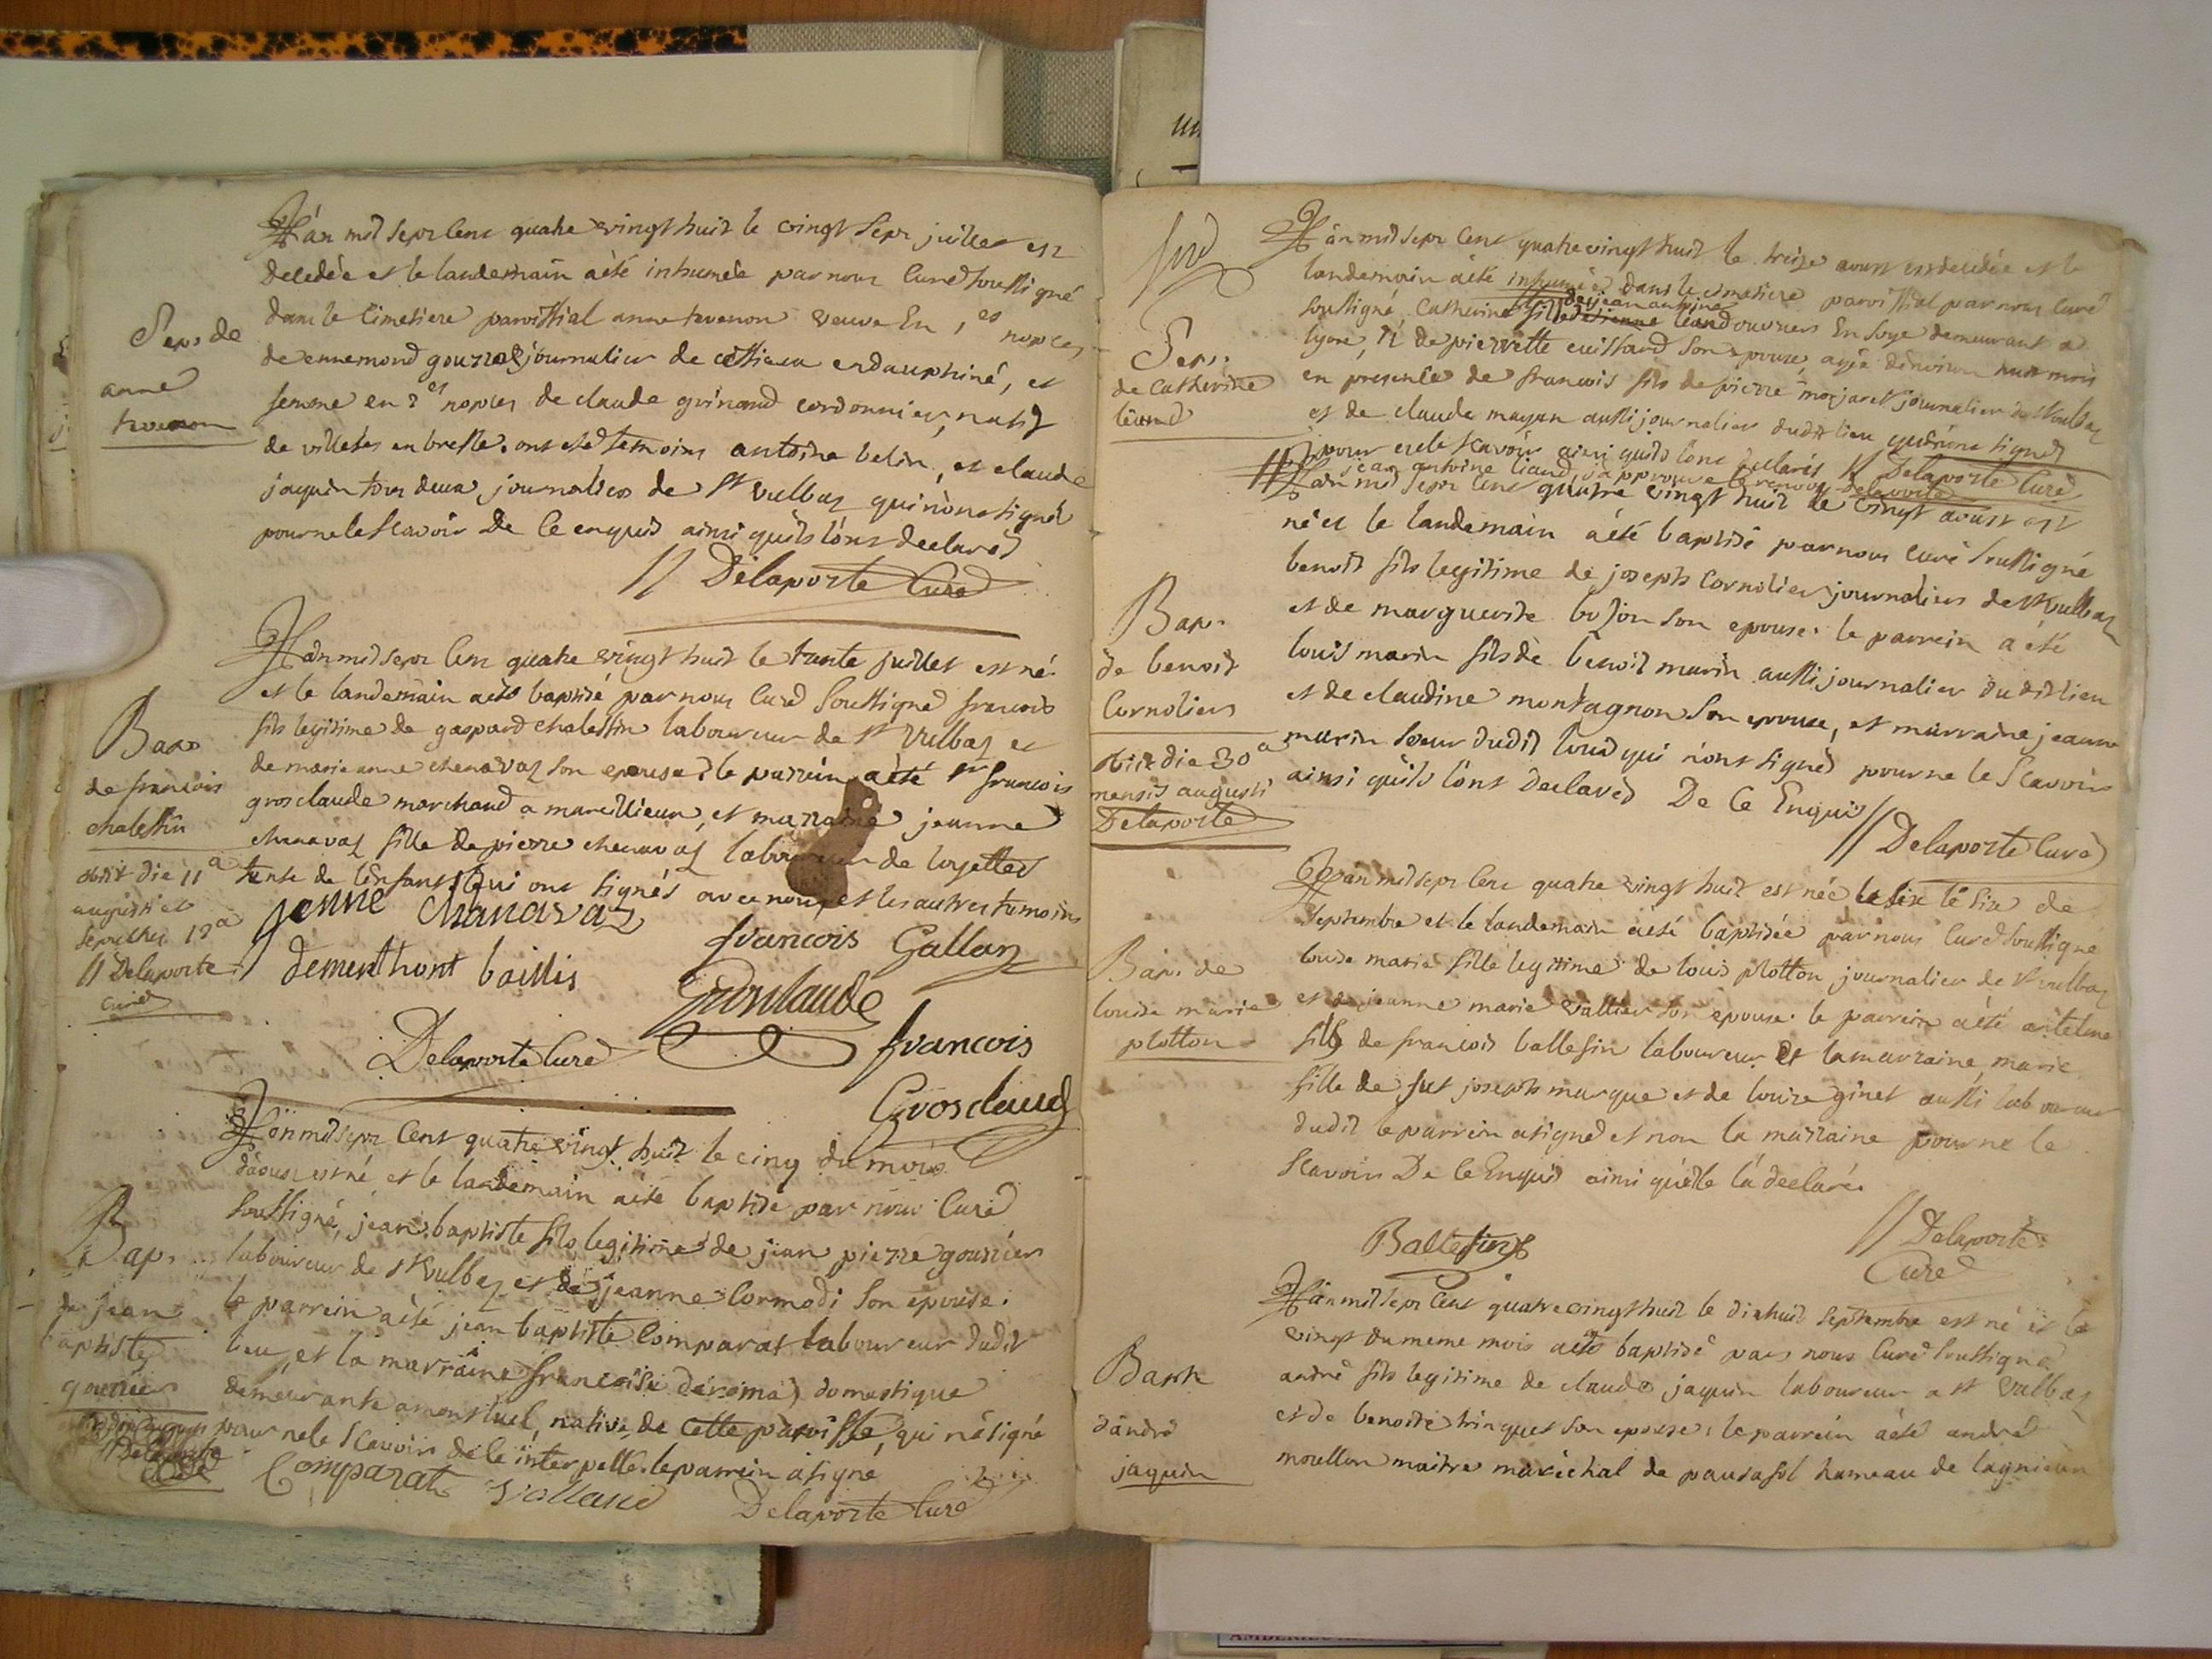 L'an mil sept cent quatre vingt huit le vingt sept juillet est
decedée et le landemain a été inhumée par nous Curé soussigné
dans le cimetiere paroissial anne tevenon veuve En 1es nopces
de ennemond gourret journalier de en dauphiné, et
femme en 2es nopces de claude grinand cordonnier, natif
de villettes en bresse. ont été temoins antoine belin, et claude
jaquin tous deux journaliers de st vulbaz qui n'ont signé
pour ne le scavoir De ce enquis ainsi qu'ils l'ont declaré
// Delaporte Curé
Sep. de
anne
tevenon
L'an mil sept cent quatre vingt huit le trente juillet est né
et le landemain a été baptisé par nous Curé soussigné francois
fils legitime de gaspard chalessin laboureur de st vulbaz et
de marie anne chenavaz son epouse. le parrein a été sr francois
grosclaude marchand a marcillieux, et marraine jeanne
chenavaz fille de pierre chenavaz laboureur de loyettes
tante de l'enfant qui ont signés avec nous, et les autres temoins
Bap.
de francois
chalessin
obiit die 11a
augusti et
sepultus 12a
// Delaporte
curé
jenne chanavaz
francois Gallan
dementhont baillis
Grosclaude
Delaporte Curé
francois
Grosclaud
L'an mil sept cent quatre vingt huit le cinq du mois
d'aoust est né et le landemain a été baptisé par nous Curé
soussigné, jean baptiste fils legitime de jean pierre gourrier
laboureur de st vulbaz et de jeanne cormodi son epouse.
le parrein a été jean baptiste Comparat laboureur dudit
lieu, et la marraine francoise domestique
demeurante a montluel, native de cette paroisse, qui n'a signé
pour ne le scavoir de ce interpellé. le parrein a signé
Bap.
de jean
baptiste
gourrier
Delaporte
Comparat Volland Delaporte Curé
L'an mil sept cent quatre vingt huit le treize aoust est decedée et le
landemain a été inhumée dans le cimetiere paroissial par nous Curé
de jean antoine
soussigné Catherine fille d'etienne leand ouvriers En soye demeurant a
lyon, et de pierrette cuissard son epouse, agée d'environ huit mois
en presence de francois fils de pierre morjaret journalier de st vulbaz
et de claude mayan aussi journalier dudit lieu qui n'ont signé
pour ne le scavoir ainsi qu'ils l'ont declarés // Delaporte Curé
// jean antoine liand j'approuve le renvoy Delaporte
Sep.
de Catherine
leand
L'an mil sept cent quatre vingt huit le vingt aoust est
né et le landemain a été baptisé par nous curé soussigné
benoit fils legitime de joseph Cornolier journalier de st vulbaz
et de marguerite bojon son epouse. le parrein a été
louis marin fils de benoit marin aussi journalier dudit lieu
et de claudine montagnon son epouse, et marraine jeanne
marin soeur dudit louis qui n'ont signés pour ne le scavoir
ainsi qu'ils l'ont declarés De ce Enquis // Delaporte Curé
Bap.
de benoit
Cornoliers
obiit die 30a
mensis augusti
Delaporte
L'an mil sept cent quatre vingt huit est née le six le six de
septembre et le landemain a été baptisée par nous Curé soussigné
louise marie fille legitime de louis plotton journalier de st vulbaz
et de jeanne marie vallier son epouse. le parrein a été antelme
fils de francois ballefin laboureur Et la marraine marie
fille de fut joseph marque et de louise ginet aussi laboureur
dudit le parrein a signé et non la marraine pour ne le
scavoir De ce Enquis ainsi qu'elle l'a declaré.
Bap. de
louise marie
plotton
Ballefin
// Delaporte
Curé
L'an mil sept cent quatre vingt huit le dix huit septembre est né et le
vingt du meme mois a été baptisé par nous Curé soussigné
andré fils legitime de claude jaquin laboureur a st vulbaz
et de benoite trinquet son epouse. le parrein a été andré
moullon maitre maréchal de pausafol hameau de lagnieu
Bapt.
d'andré
jaquin